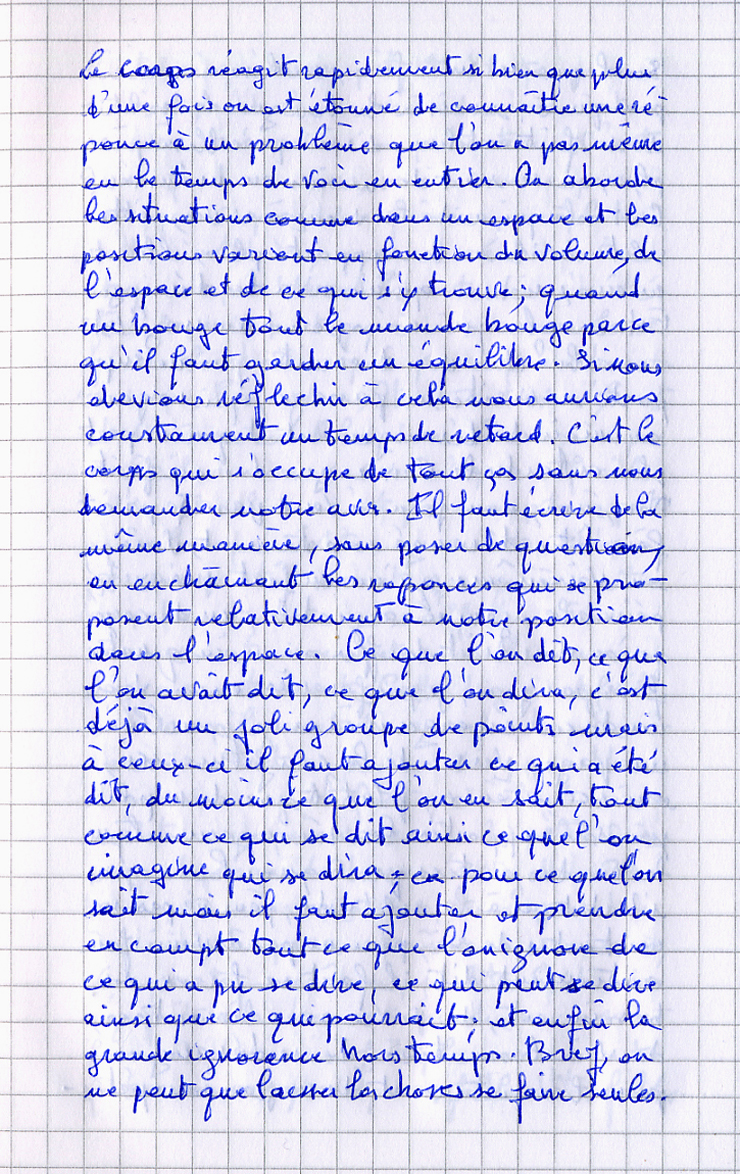 Le corps réagit rapidement si bien que plus
d'une fois on est étonné de connaître une ré
ponce à un problème que l'on a pas même
eu le temps de voir en entier. On aborde
les situations comme dans un espace et les
positions varient en fonction du volume, de
l'espace et de ce qui s'y trouve; quand
un bouge tout le monde bouge parce
qu'il faut garder un équilibre. Si nous
devions réflechir à cela nous aurions
constamment un temps de retard. C'est le
corps qui s'occupe de tout ça sans nous
demander notre avis. Il faut écrire de la
même manière, sans poser de question,
en enchaînant les reponces qui se pro-
posent relativement à notre position
dans l'espace. Ce que l'on dit, ce que
l'on avait dit, ce que l'on dira, c'est
déjà un joli groupe de points mais
à ceux-ci il faut ajouter ce qui a été
dit, du moins ce que l'on en sait, tout
comme ce qui se dit ainsi ce que l'on
imagine qui se dira; ça pour ce que l'on
sait mais il faut ajouter et prendre
en compt tout ce que l'on ignore de
ce qui a pu se dire, ce qui peut se dire
ainsi que ce qui pourrait; et enfin la
grande ignorence hors temps. Bref, on
ne peut que laisser les choses se faire seules.